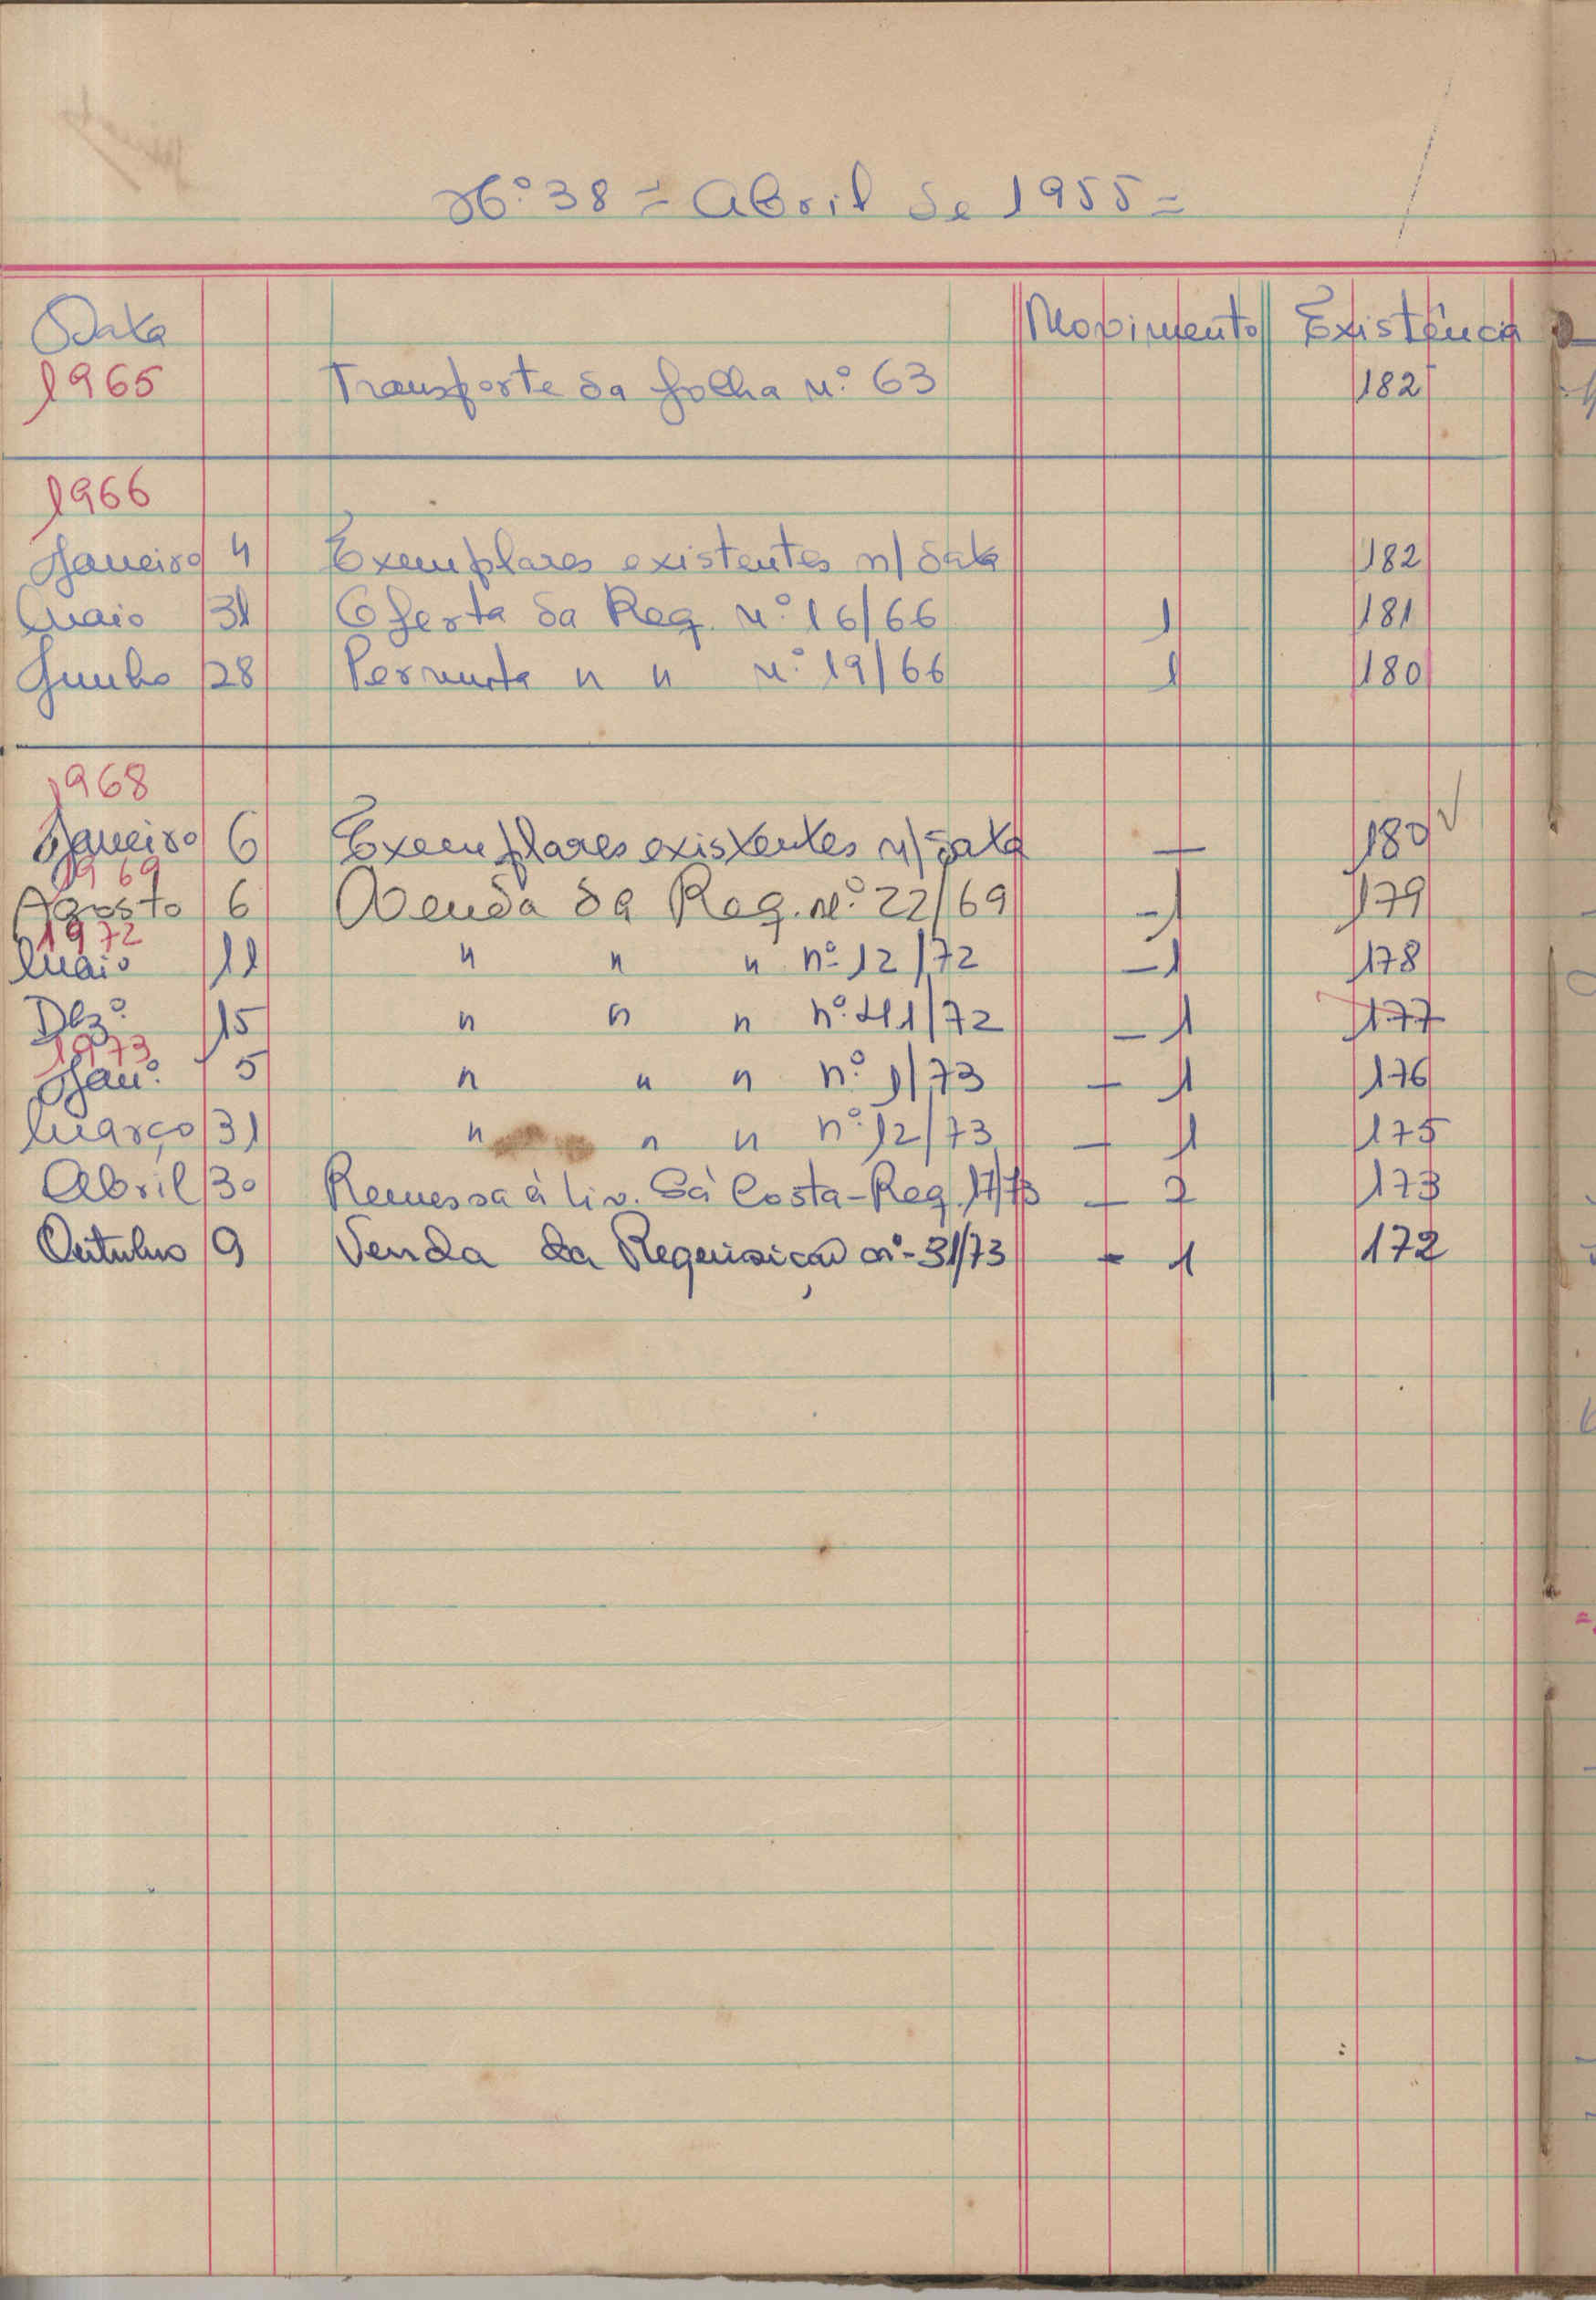 Nº 38 = Abril de 1955 =
Data Movimento Existência
1965 Transporte da folha nº 63 182
1966
Janeiro 4 Exemplares existentes n/data 182
Maio 31 Oferta da Req. nº 16/66 1 181
Junho 28 Permuta " " nº 19/66 1 180
1968
Janeiro 6 Exemplares existentes n/data — 180 ✓
1969
Agosto 6 Venda da Req. nº 22/69 -1 179
1972
Maio 11 " " " nº 12/72 -1 178
Dezº 15 " " " nº 41/72 - 1 177
1973
Janº 5 " " " nº 1/73 - 1 176
Março 31 " " " nº 12/73 - 1 175
Abril 30 Remessa à Liv. Sá Costa - Req. 17/73 - 2 173
Outubro 9 Venda da Requisição nº 31/73 - 1 172